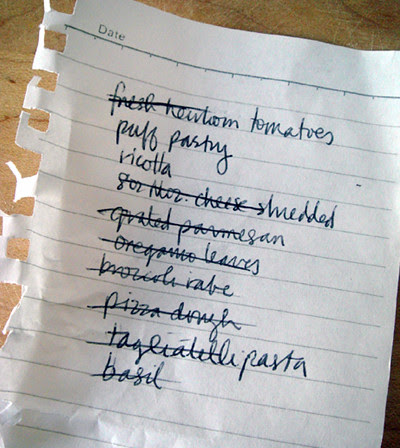 Date
fresh heirloom tomatoes
puff pastry
ricotta
goz Moz. cheese shredded
grated parmesan
oregano leaves
broccoli rabe
pizza dough
tagliatelli pasta
basil